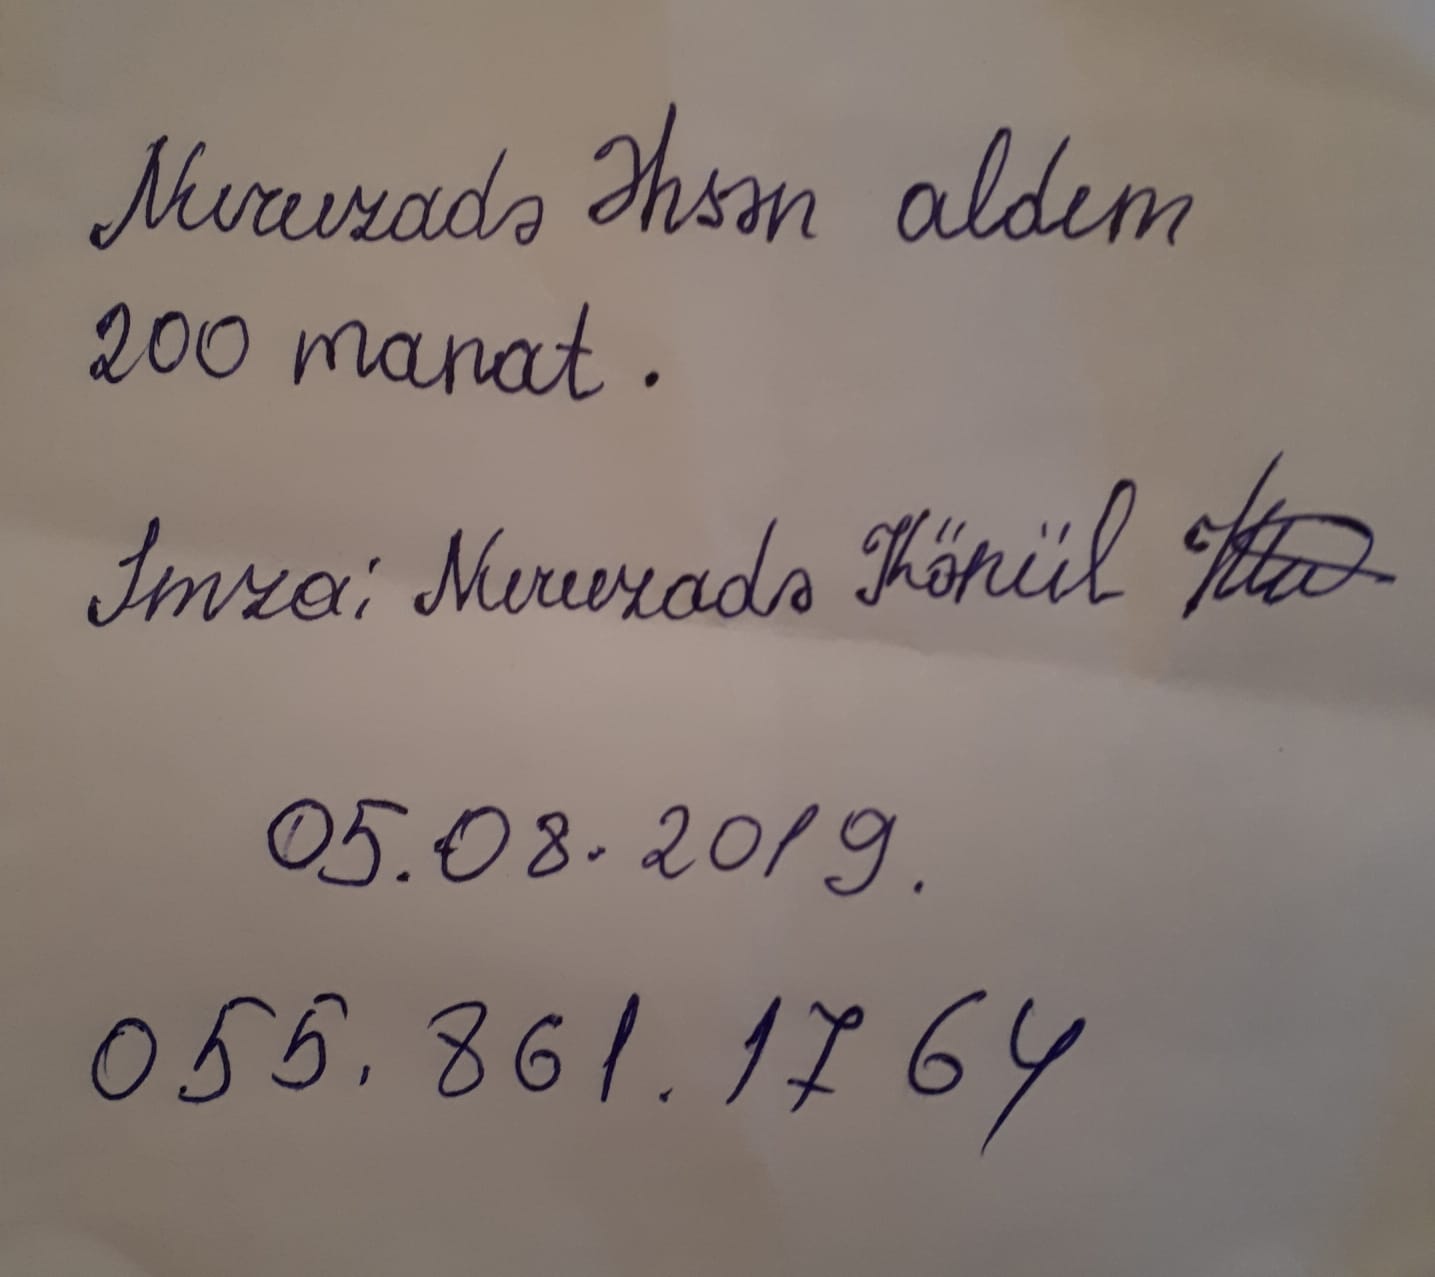 Nuruzadə Əhsən aldım
200 manat.
İmza: Nuruzadə Könül
05.08.2019.
055.861.1764